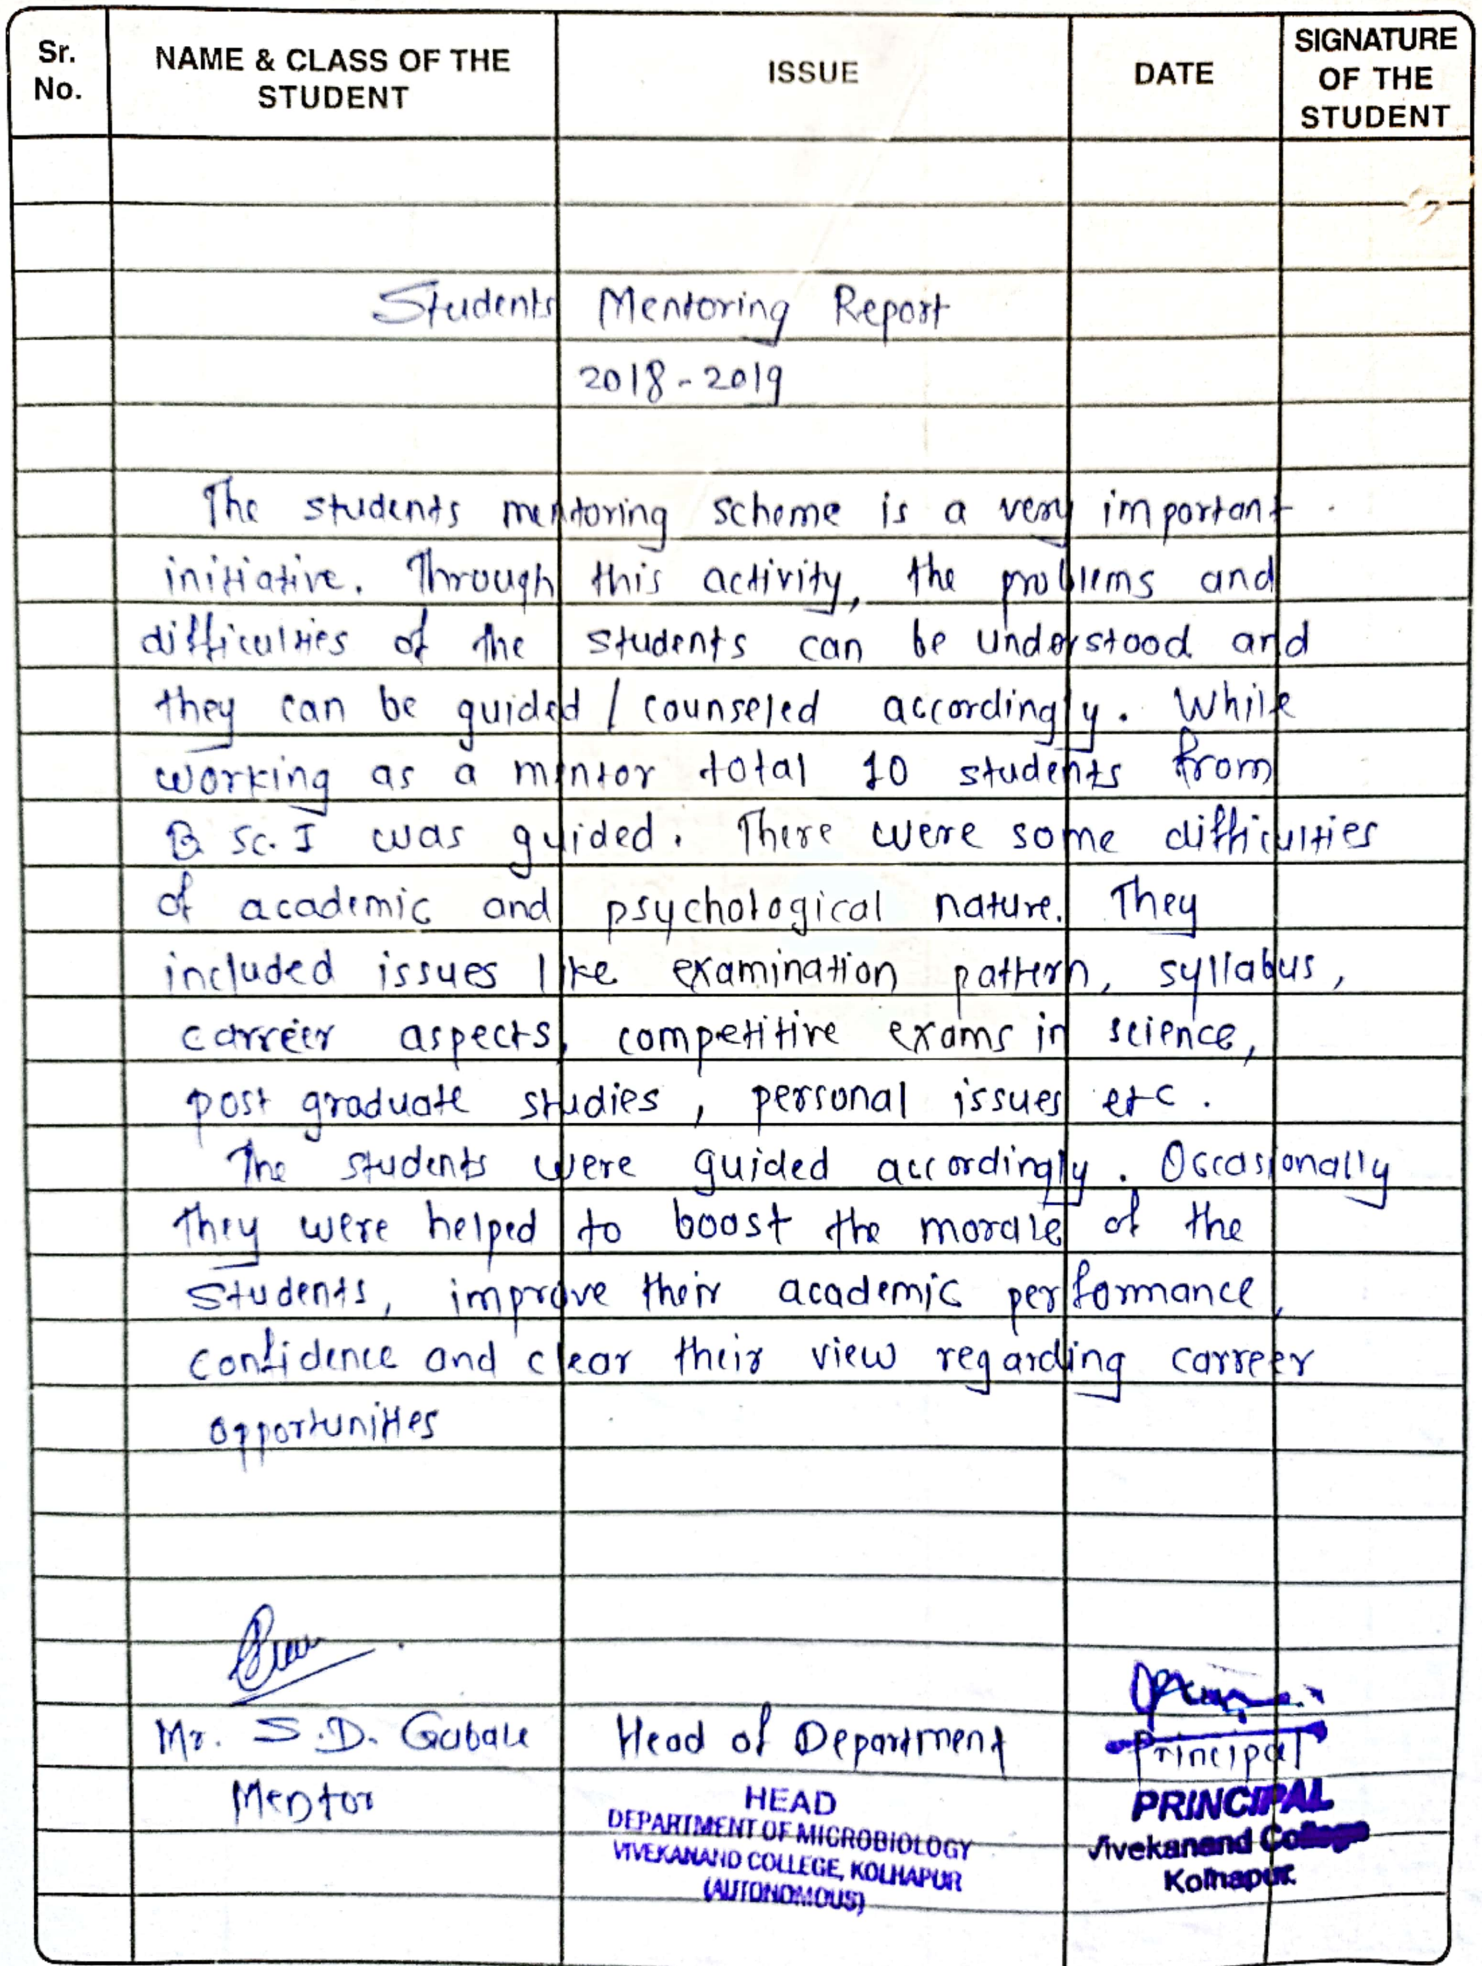 Sr. No.
NAME & CLASS OF THE STUDENT
ISSUE
DATE
SIGNATURE OF THE STUDENT
Students Mentoring Report
2018-2019
The students mentoring scheme is a very important
initiative. Through this activity, the problems and
difficulties of the students can be understood and
they can be guided / counseled accordingly. While
working as a mentor total 10 students from
B Sc. I was guided. There were some difficulties
of academic and psychological nature. They
included issues like examination pattern, syllabus,
carreer aspects, competitive exams in science,
post graduate studies, personal issues etc.
The students were guided accordingly. Occasionally
They were helped to boost the morale of the
students, improve their academic performance,
confidence and clear their view regarding carreer
opportunities
Mr. S.D. Gabale
Mentor
Head of Department
HEAD
DEPARTMENT OF MICROBIOLOGY
VIVEKANAND COLLEGE, KOLHAPUR
(AUTONOMOUS)
Principal
PRINCIPAL
Vivekanand College
Kolhapur.